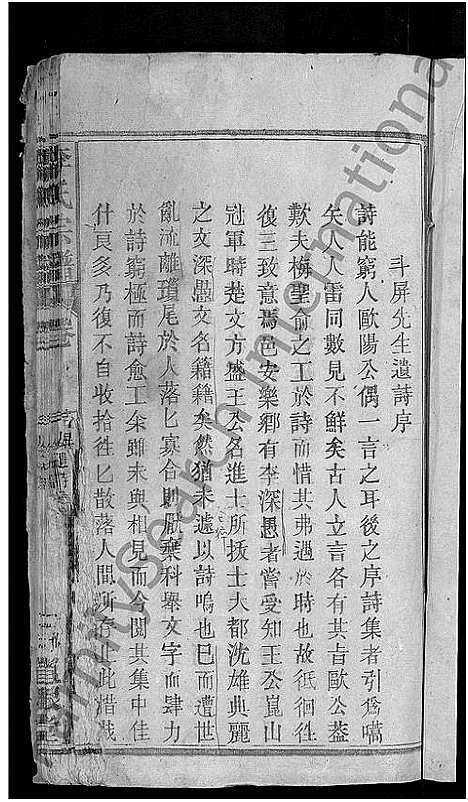 斗屏先生遺詩序
詩能窮人歐陽公偶一言之耳後之序詩集者引為嚆
矢人人雷同數見不鮮矣古人立言各有其旨歐公葢
歎夫梅聖俞之工於詩而惜其弗遇於時也故徘徊徃
復三致意焉邑安樂鄉有李深愚者嘗受知王公崑山
冠軍時楚文方盛王公名進士所拔士大都沈雄典麗
之文深愚文名籍籍矣然猶未遽以詩鳴也已而遭世
亂流離瑣尾於人落匕寡合則厭棄科舉文字而肆力
於詩窮極而詩愈工余雖未與相見而今閱其集中佳
什頁多乃復不自收拾徃匕散落人間所存止此惜哉
李氏宗譜
InfinitySearch International